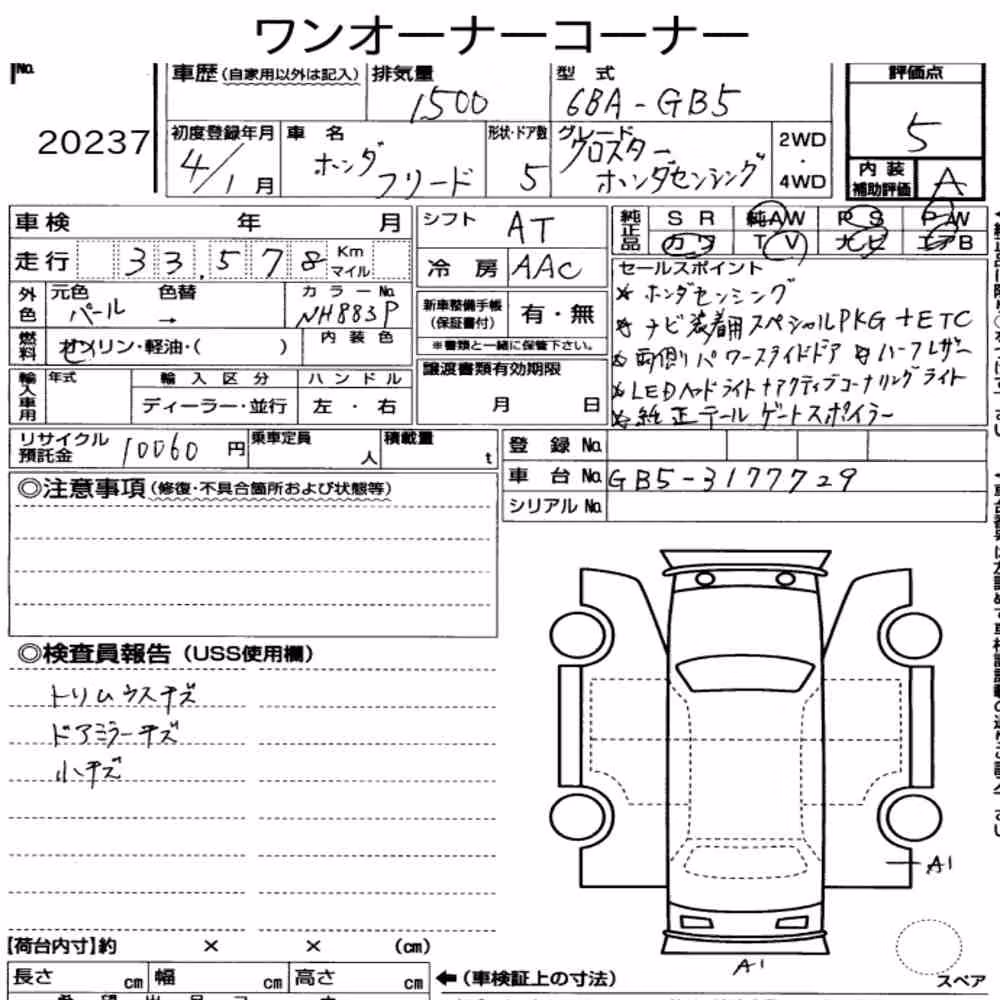 ワンオーナーコーナー
No.
20237
車歴(自家用以外は記入)
排気量
1500
型 式
6BA-GB5
評価点
5
初度登録年月
4/1月
車 名
ホンダ
フリード
形状・ドア数
5
グレード
クロスター
ホンダセンシング
2WD
・
4WD
内 装
補助評価
A
車 検 年 月
シフト AT
純正品
SR 純AW PS AW
カワ TV ナビ エアB
走 行 33.578 Km
マイル
冷 房 AAC
外色
元色 色替
パール →
カラーNo.
NH883P
燃料
ガソリン・軽油・( )
内 装 色
新車整備手帳
(保証書付)
有・無
※書類と一緒に保管下さい。
セールスポイント
* ホンダセンシング
* ナビ装着用スペシャルPKG+ETC
* 両側パワースライドドア * ハーフレザー
* LEDヘッドライト+アクティブコーナリングライト
* 純正テールゲートスポイラー
輸入車用
年式
輸 入 区 分
ディーラー・並行
ハ ン ド ル
左 ・ 右
譲渡書類有効期限
月 日
リサイクル
預託金
10060 円
乗車定員
人
積載量
t
登 録 No.
車 台 No. GB5-3177729
シリアル No.
◎注意事項(修復・不具合箇所および状態等)
◎検査員報告(USS使用欄)
トリムウスキズ
ドアミラーキズ
小キズ
A1
A1
【荷台内寸】約 × × (cm)
長さ cm 幅 cm 高さ cm
←(車検証上の寸法)
スペア